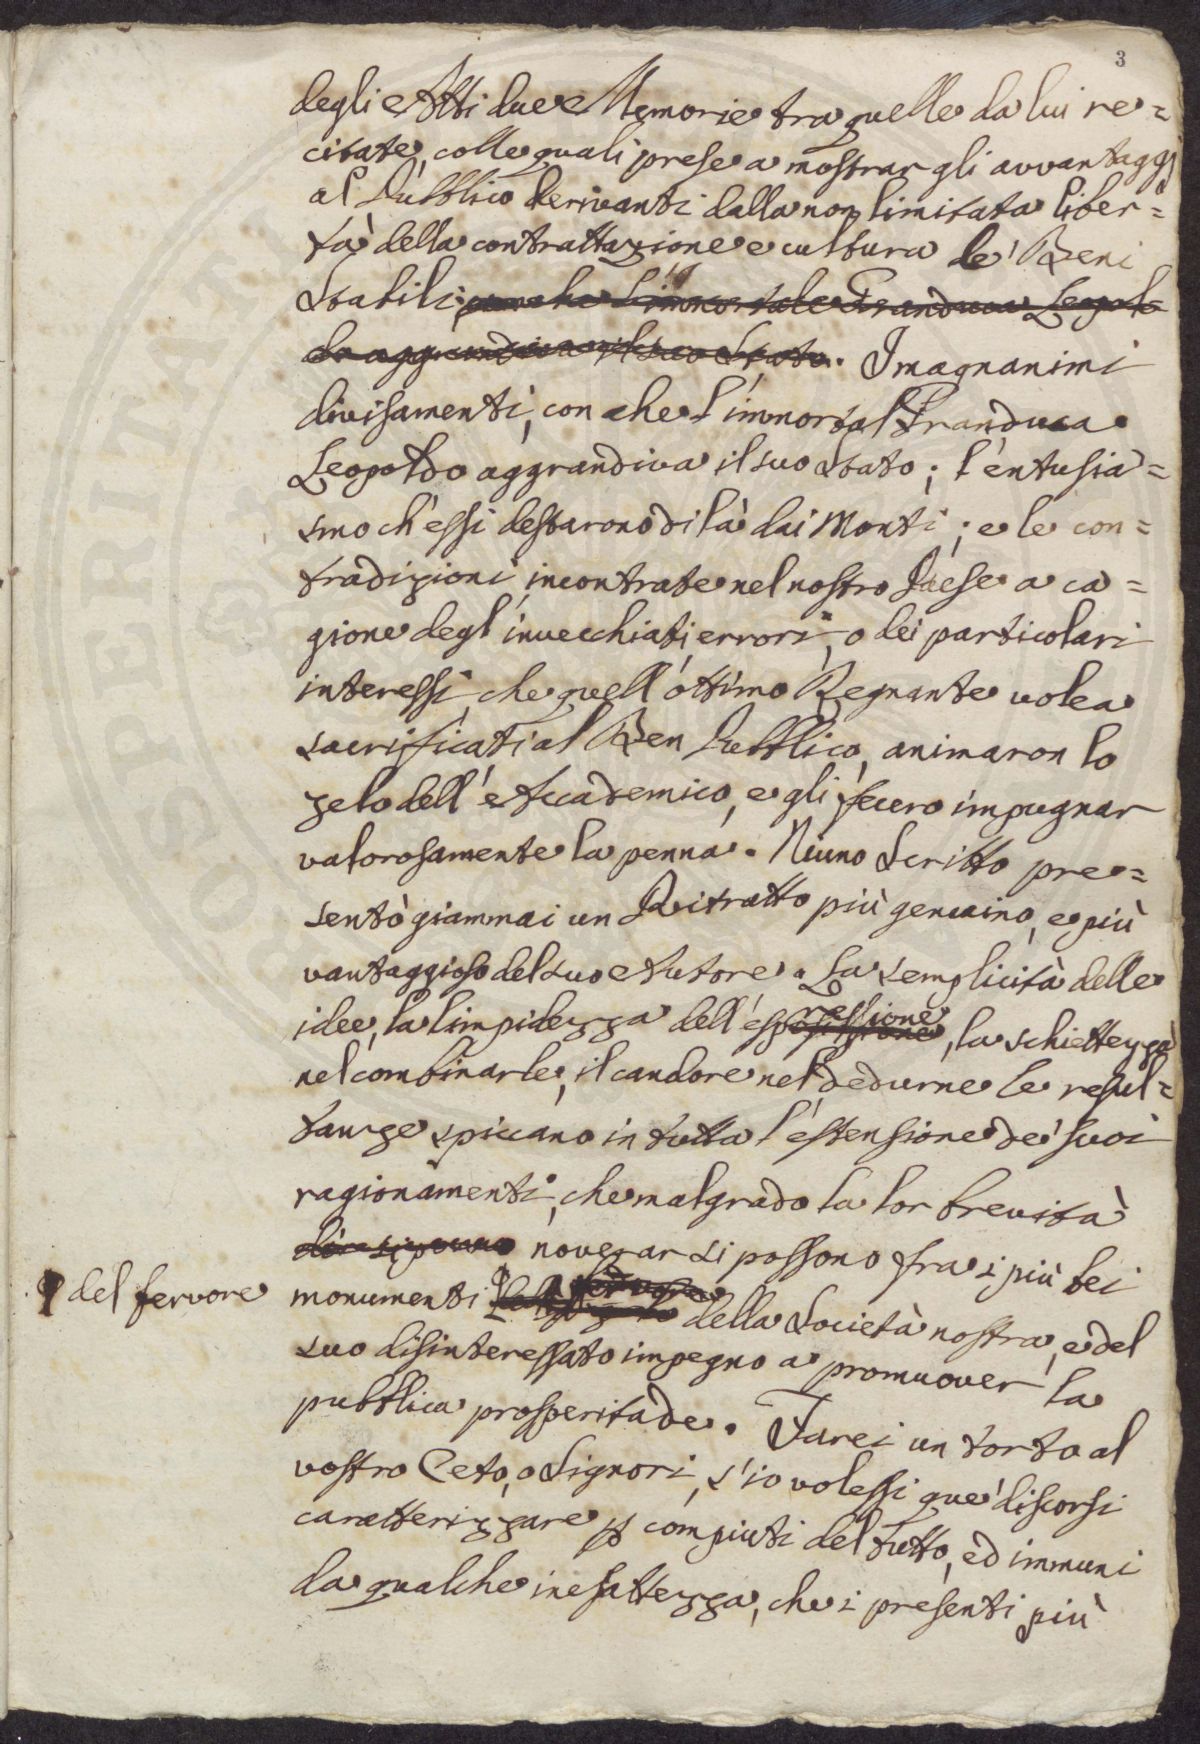 3
degli Atti due Memorie tra quelle da lui re=
citate, colle quali prese a mostrar gli avvantaggj
al Pubblico derivanti dalla non limitata liber=
tà della contrattazione e cultura de' Beni
Stabili: l'immortale Granduca Leopol
do aggrandiva il suo Stato. I magnanimi
divisamenti, con che l'immortal Granduca
Leopoldo aggrandiva il suo Stato; l'entusia=
smo ch'essi destarono di là dai Monti; e le con=
tradizioni incontrate nel nostro Paese a ca=
gione degl'invecchiati errori, o dei particolari
interessi, che quell'ottimo Regnante volea
sacrificati al Ben Pubblico, animaron lo
zelo dell'Accademico, e gli fecero impugnar
valorosamente la penna. Niuno Scritto pre=
sentò giammai un Ritratto più genuino, e più
vantaggioso del suo Autore. La semplicità delle
idee, la limpidezza dell'espressione, la schiettezza
nel combinarle, il candore nel dedurne le resul=
tanze spiccano in tutta l'estensione de' suoi
ragionamenti, che malgrado la lor brevità
noverar si possono fra i più bei
del fervore
monumenti della Società nostra, e del
suo disinteressato impegno a promuover la
pubblica prosperitade. Farei un torto al
vostro Ceto, o Signori, s'io volessi que' discorsi
caratterizzare p compiuti del tutto, ed immuni
da qualche inesattezza, che i presenti più